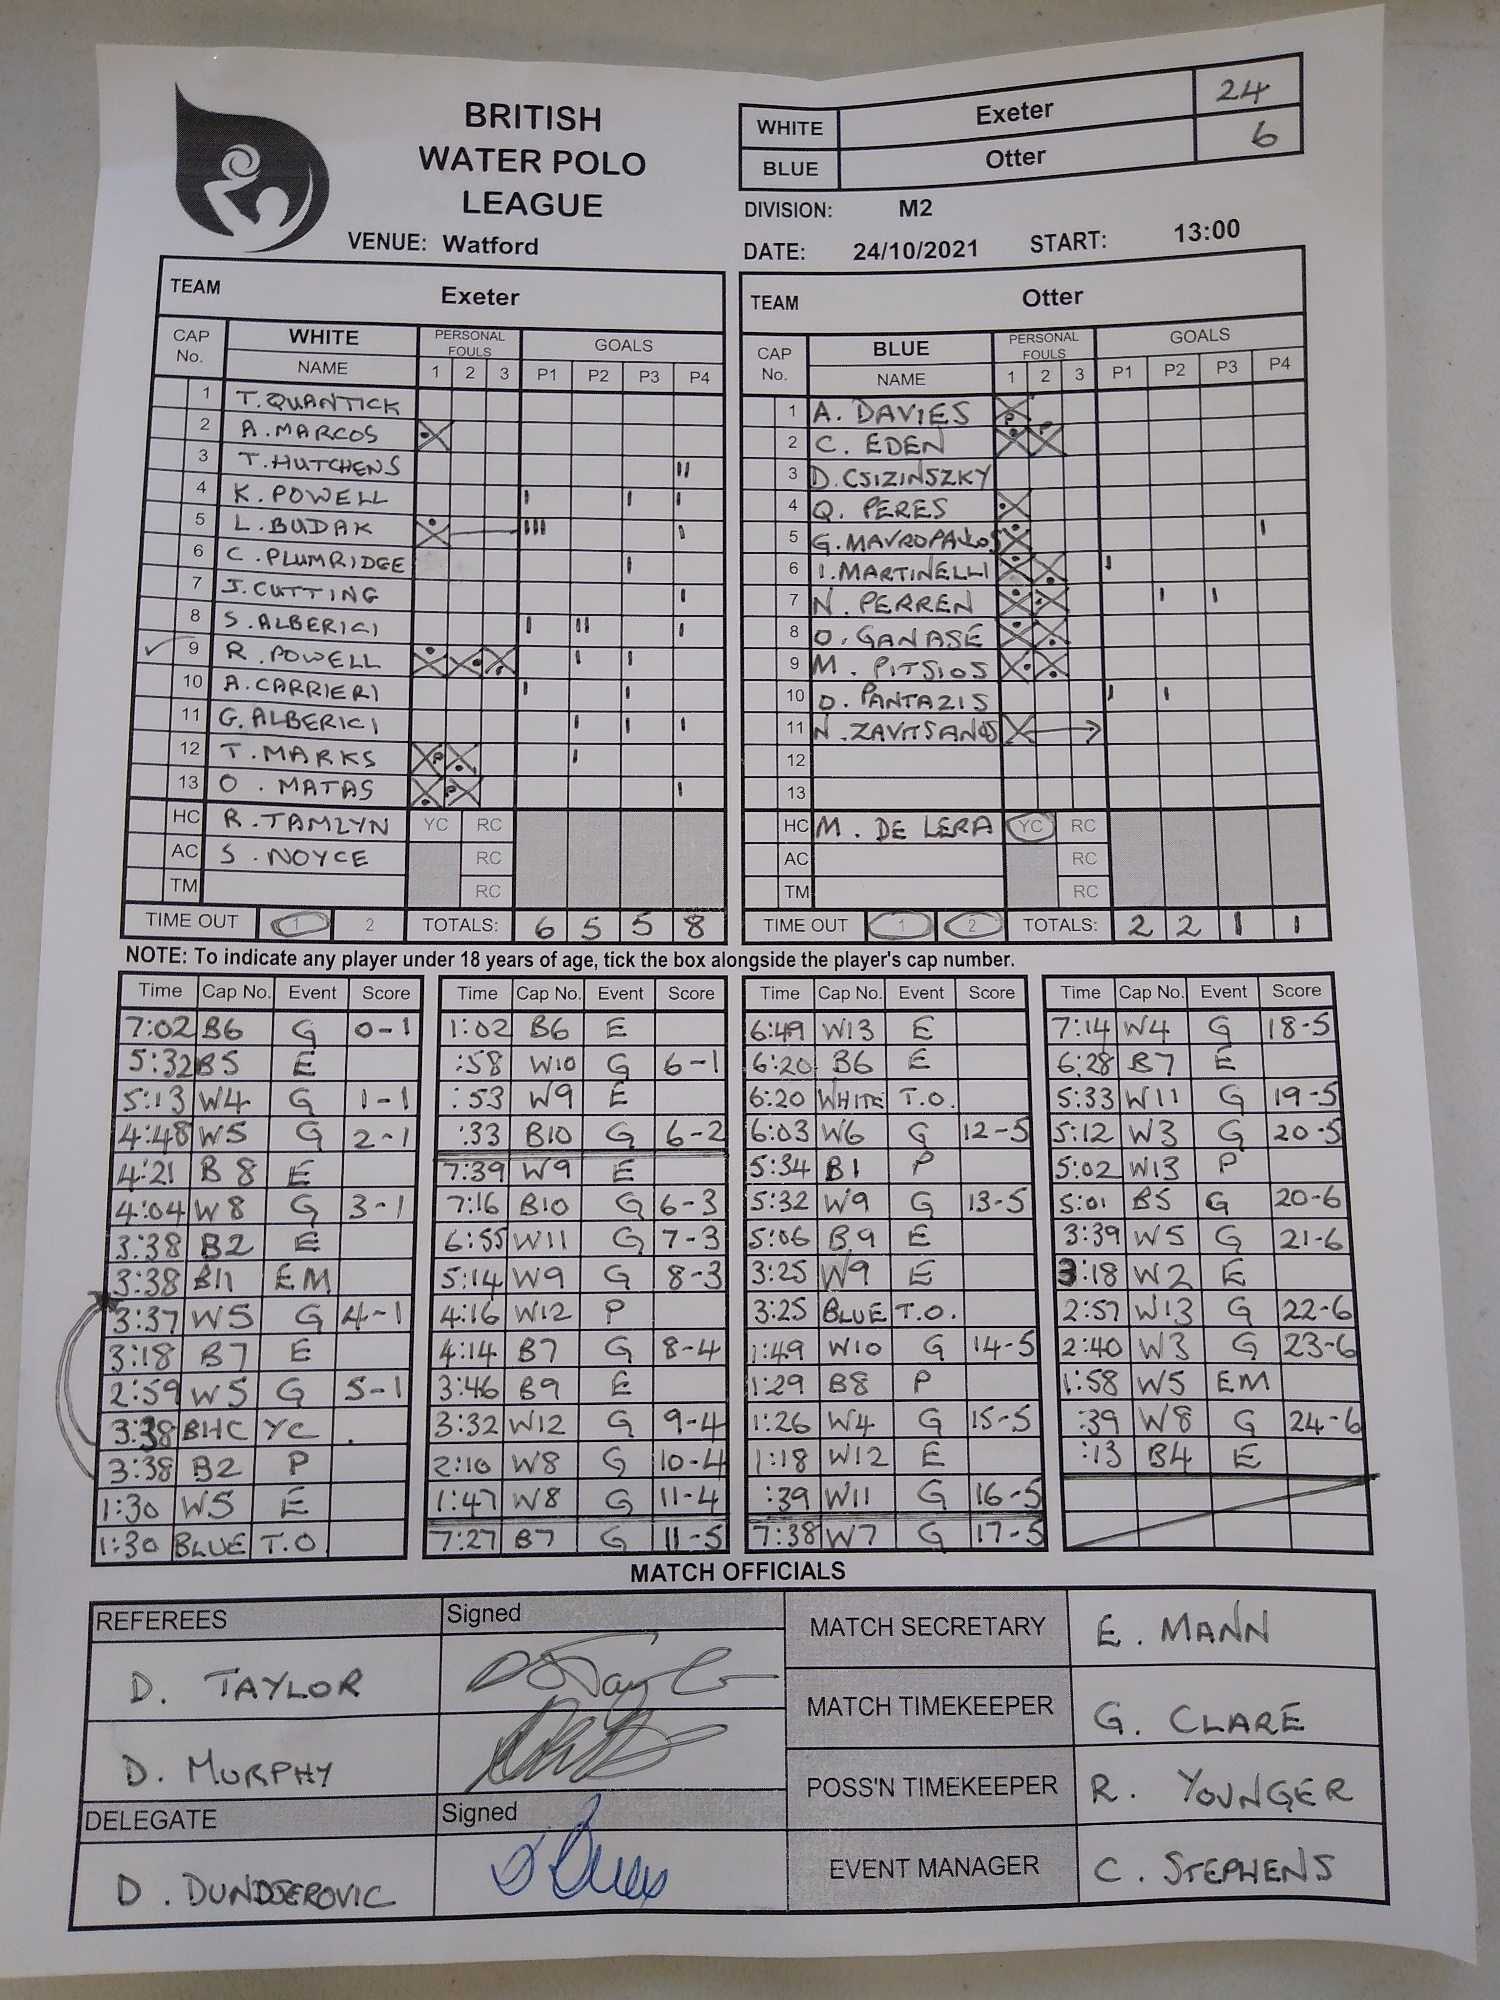 BRITISH
WATER POLO
LEAGUE
WHITE Exeter 24
BLUE Otter 6
DIVISION: M2
VENUE: Watford
DATE: 24/10/2021 START: 13:00
TEAM Exeter
CAP No. WHITE PERSONAL FOULS GOALS
NAME 1 2 3 P1 P2 P3 P4
1 T. QUANTICK
2 A. MARCOS
3 T. HUTCHENS
4 K. POWELL
5 L. BUDAK
6 C. PLUMRIDGE
7 J. CUTTING
8 S. ALBERICI
9 R. POWELL
10 A. CARRIERI
11 G. ALBERICI
12 T. MARKS
13 O. MATAS
HC R. TAMLYN YC RC
AC S. NOYCE RC
TM RC
TIME OUT 1 2 TOTALS: 6 5 5 8
TEAM Otter
CAP No. BLUE PERSONAL FOULS GOALS
NAME 1 2 3 P1 P2 P3 P4
1 A. DAVIES
2 C. EDEN
3 D. CSIZINSZKY
4 Q. PERES
5 G. MAVROPALOS
6 I. MARTINELLI
7 N. PERREN
8 O. GANASE
9 M. PITSIOS
10 D. PANTAZIS
11 N. ZAVITSANOS
12
13
HC M. DE LERA YC RC
AC RC
TM RC
TIME OUT 1 2 TOTALS: 2 2 1 1
NOTE: To indicate any player under 18 years of age, tick the box alongside the player's cap number.
Time Cap No. Event Score
7:02 B6 G 0-1
5:32 B5 E
5:13 W4 G 1-1
4:48 W5 G 2-1
4:21 B8 E
4:04 W8 G 3-1
3:38 B2 E
3:38 B11 EM
3:37 W5 G 4-1
3:18 B7 E
2:59 W5 G 5-1
3:38 BHC YC .
3:38 B2 P
1:30 W5 E
1:30 BLUE T.O
Time Cap No. Event Score
1:02 B6 E
:58 W10 G 6-1
:53 W9 E
:33 B10 G 6-2
7:39 W9 E
7:16 B10 G 6-3
6:55 W11 G 7-3
5:14 W9 G 8-3
4:16 W12 P
4:14 B7 G 8-4
3:46 B9 E
3:32 W12 G 9-4
2:10 W8 G 10-4
1:47 W8 G 11-4
7:27 B7 G 11-5
Time Cap No. Event Score
6:49 W13 E
6:20 B6 E
6:20 WHITE T.O.
6:03 W6 G 12-5
5:34 B1 P
5:32 W9 G 13-5
5:06 B9 E
3:25 W9 E
3:25 BLUE T.O.
1:49 W10 G 14-5
1:29 B8 P
1:26 W4 G 15-5
1:18 W12 E
:39 W11 G 16-5
7:38 W7 G 17-5
Time Cap No. Event Score
7:14 W4 G 18-5
6:28 B7 E
5:33 W11 G 19-5
5:12 W3 G 20-5
5:02 W13 P
5:01 B5 G 20-6
3:39 W5 G 21-6
3:18 W2 E
2:57 W13 G 22-6
2:40 W3 G 23-6
1:58 W5 EM
:39 W8 G 24-6
:13 B4 E
MATCH OFFICIALS
REFEREES Signed
D. TAYLOR
D. MURPHY
DELEGATE Signed
D. DUNDJEROVIC
MATCH SECRETARY E. MANN
MATCH TIMEKEEPER G. CLARE
POSS'N TIMEKEEPER R. YOUNGER
EVENT MANAGER C. STEPHENS